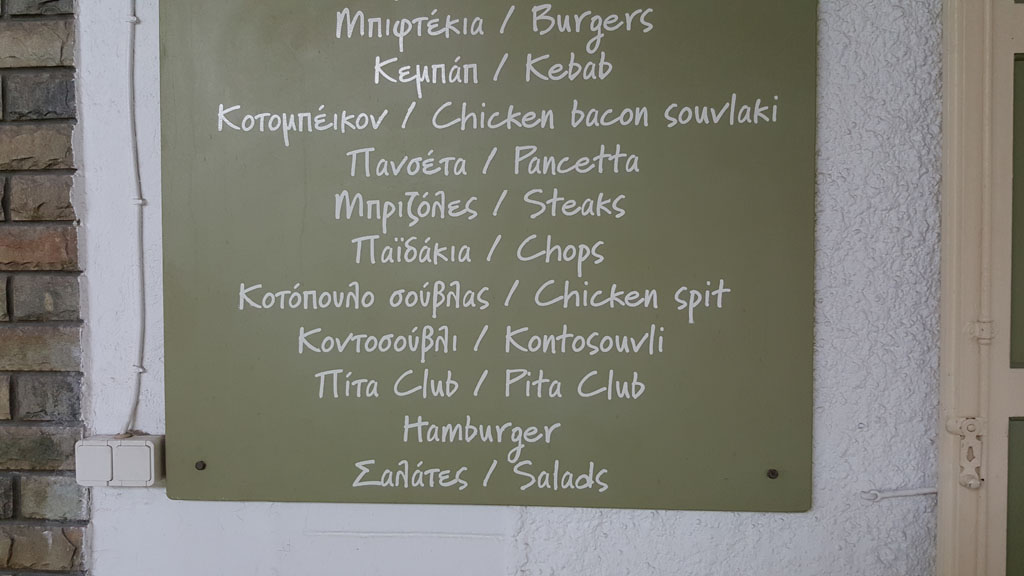 Μπιφτέκια / Burgers
Κεμπάπ / Kebab
Κοτομπέικον / Chicken bacon souvlaki
Πανσέτα / Pancetta
Μπριζόλες / Steaks
Παϊδάκια / Chops
Κοτόπουλο σούβλας / Chicken spit
Κοντοσούβλι / Kontosouvli
Πίτα Club / Pita Club
Hamburger
Σαλάτες / Salads